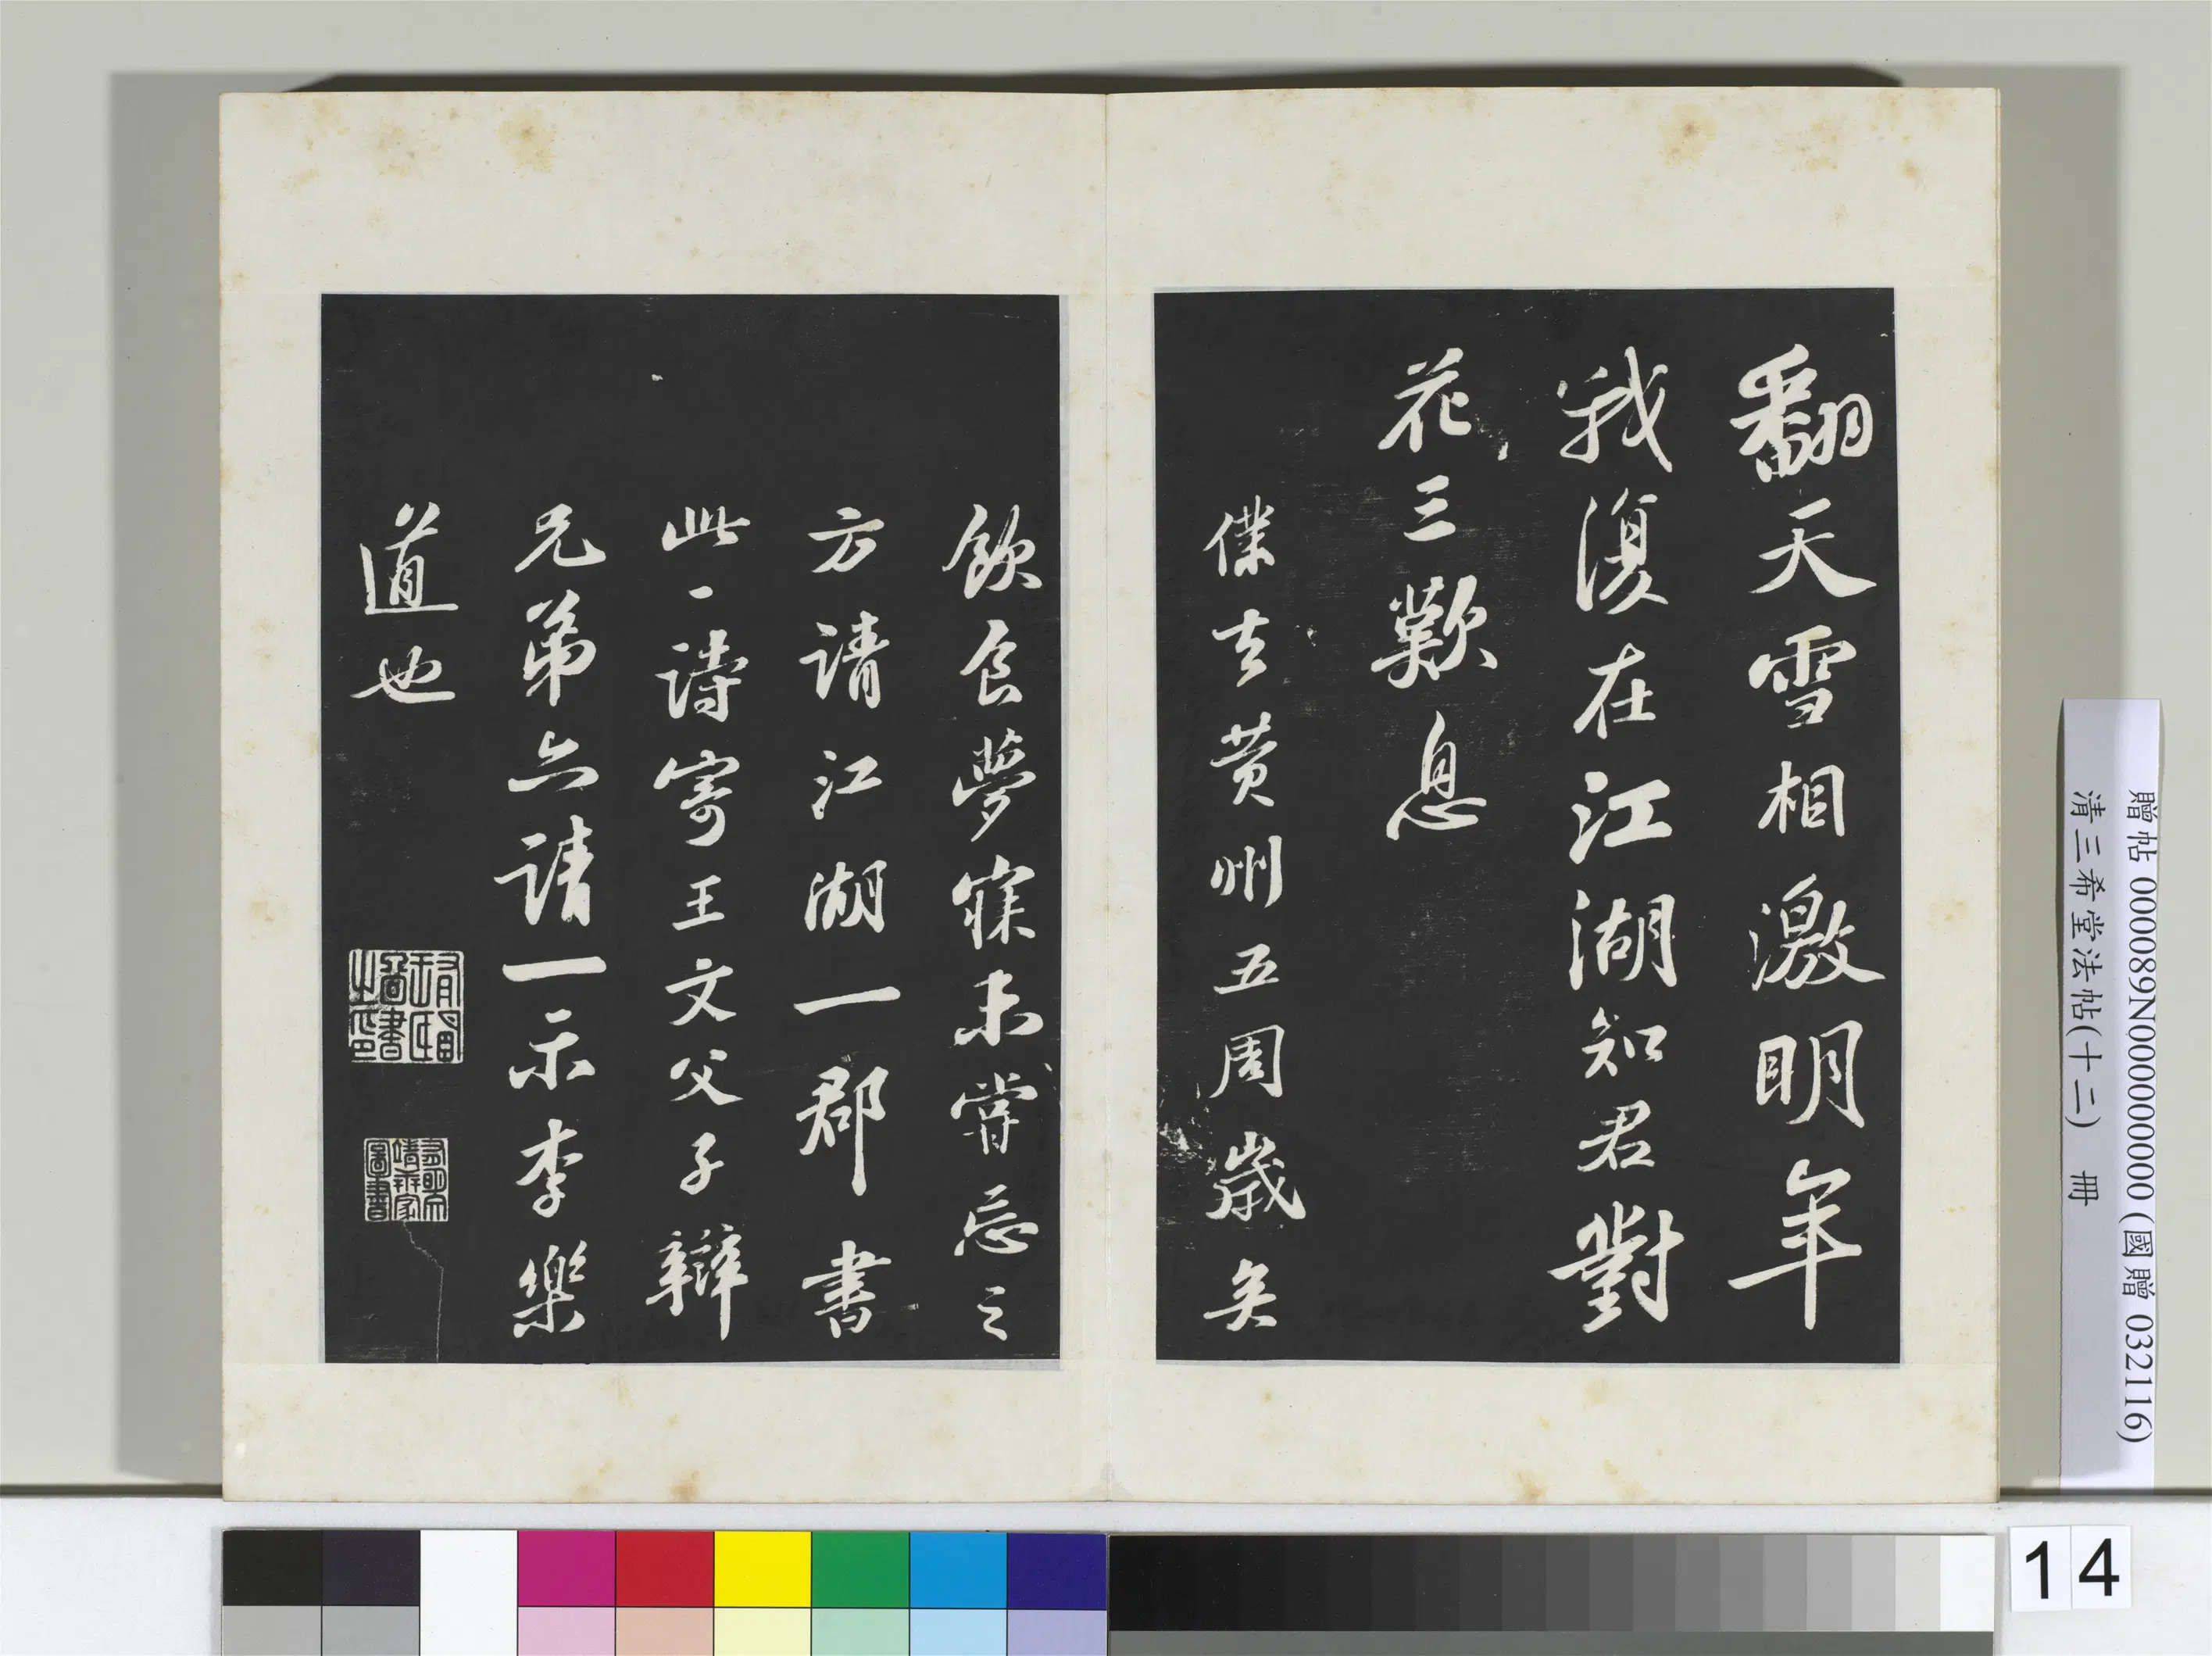 翻天雪相激明年
我復在江湖知君對
花三歎息
僕去黄州五周歲矣
飲食夢寐未嘗忘之
方請江湖一郡書
此一詩寄王文父子辯
兄弟亦請一示李樂
道也
贈帖 000089N000000000 (國贈 032116)
清三希堂法帖(十二) 冊
14